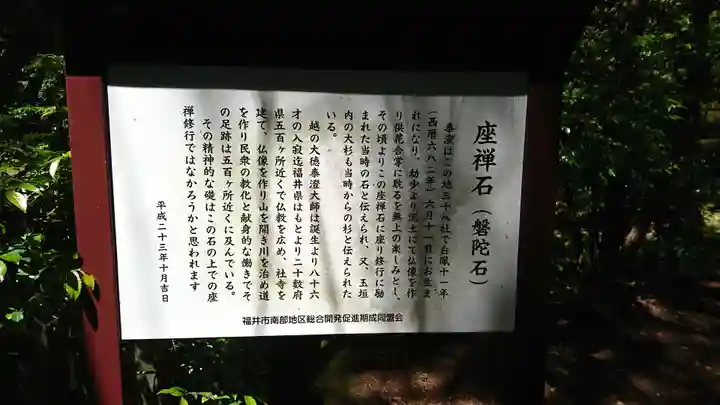 座禅石（磐陀石）
泰澄はこの地三十八社で白鳳十一年
（西暦六八二年）六月十一日にお生ま
れになり、幼少より泥土にて仏像を作
り供花合掌に耽るを無上の楽しみとし、
その頃よりこの座禅石に座り修行に励
まれた当時の石と伝えられ、又、玉垣
内の大杉も当時からの杉と伝えられた
いる。
越の大徳泰澄大師は誕生より八十六
才の入寂迄福井県はもとより二十数府
県五百ヶ所近くで仏教を広め、社寺を
建て、仏像を作り山を開き川を治め道
を作り民衆の教化と献身的な働きでそ
の足跡は五百ヶ所近くに及んでいる。
その精神的な礎はこの石の上での座
禅修行ではなかろうかと思われます
平成二十三年十月吉日
福井市南部地区総合開発促進期成同盟会